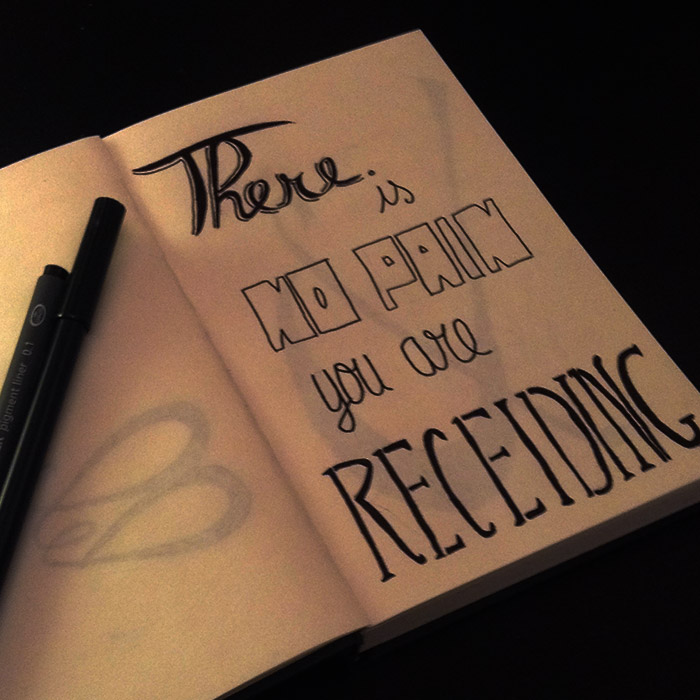 There.
is
NO PAIN
you are
RECEIDING
pigment liner 0.1